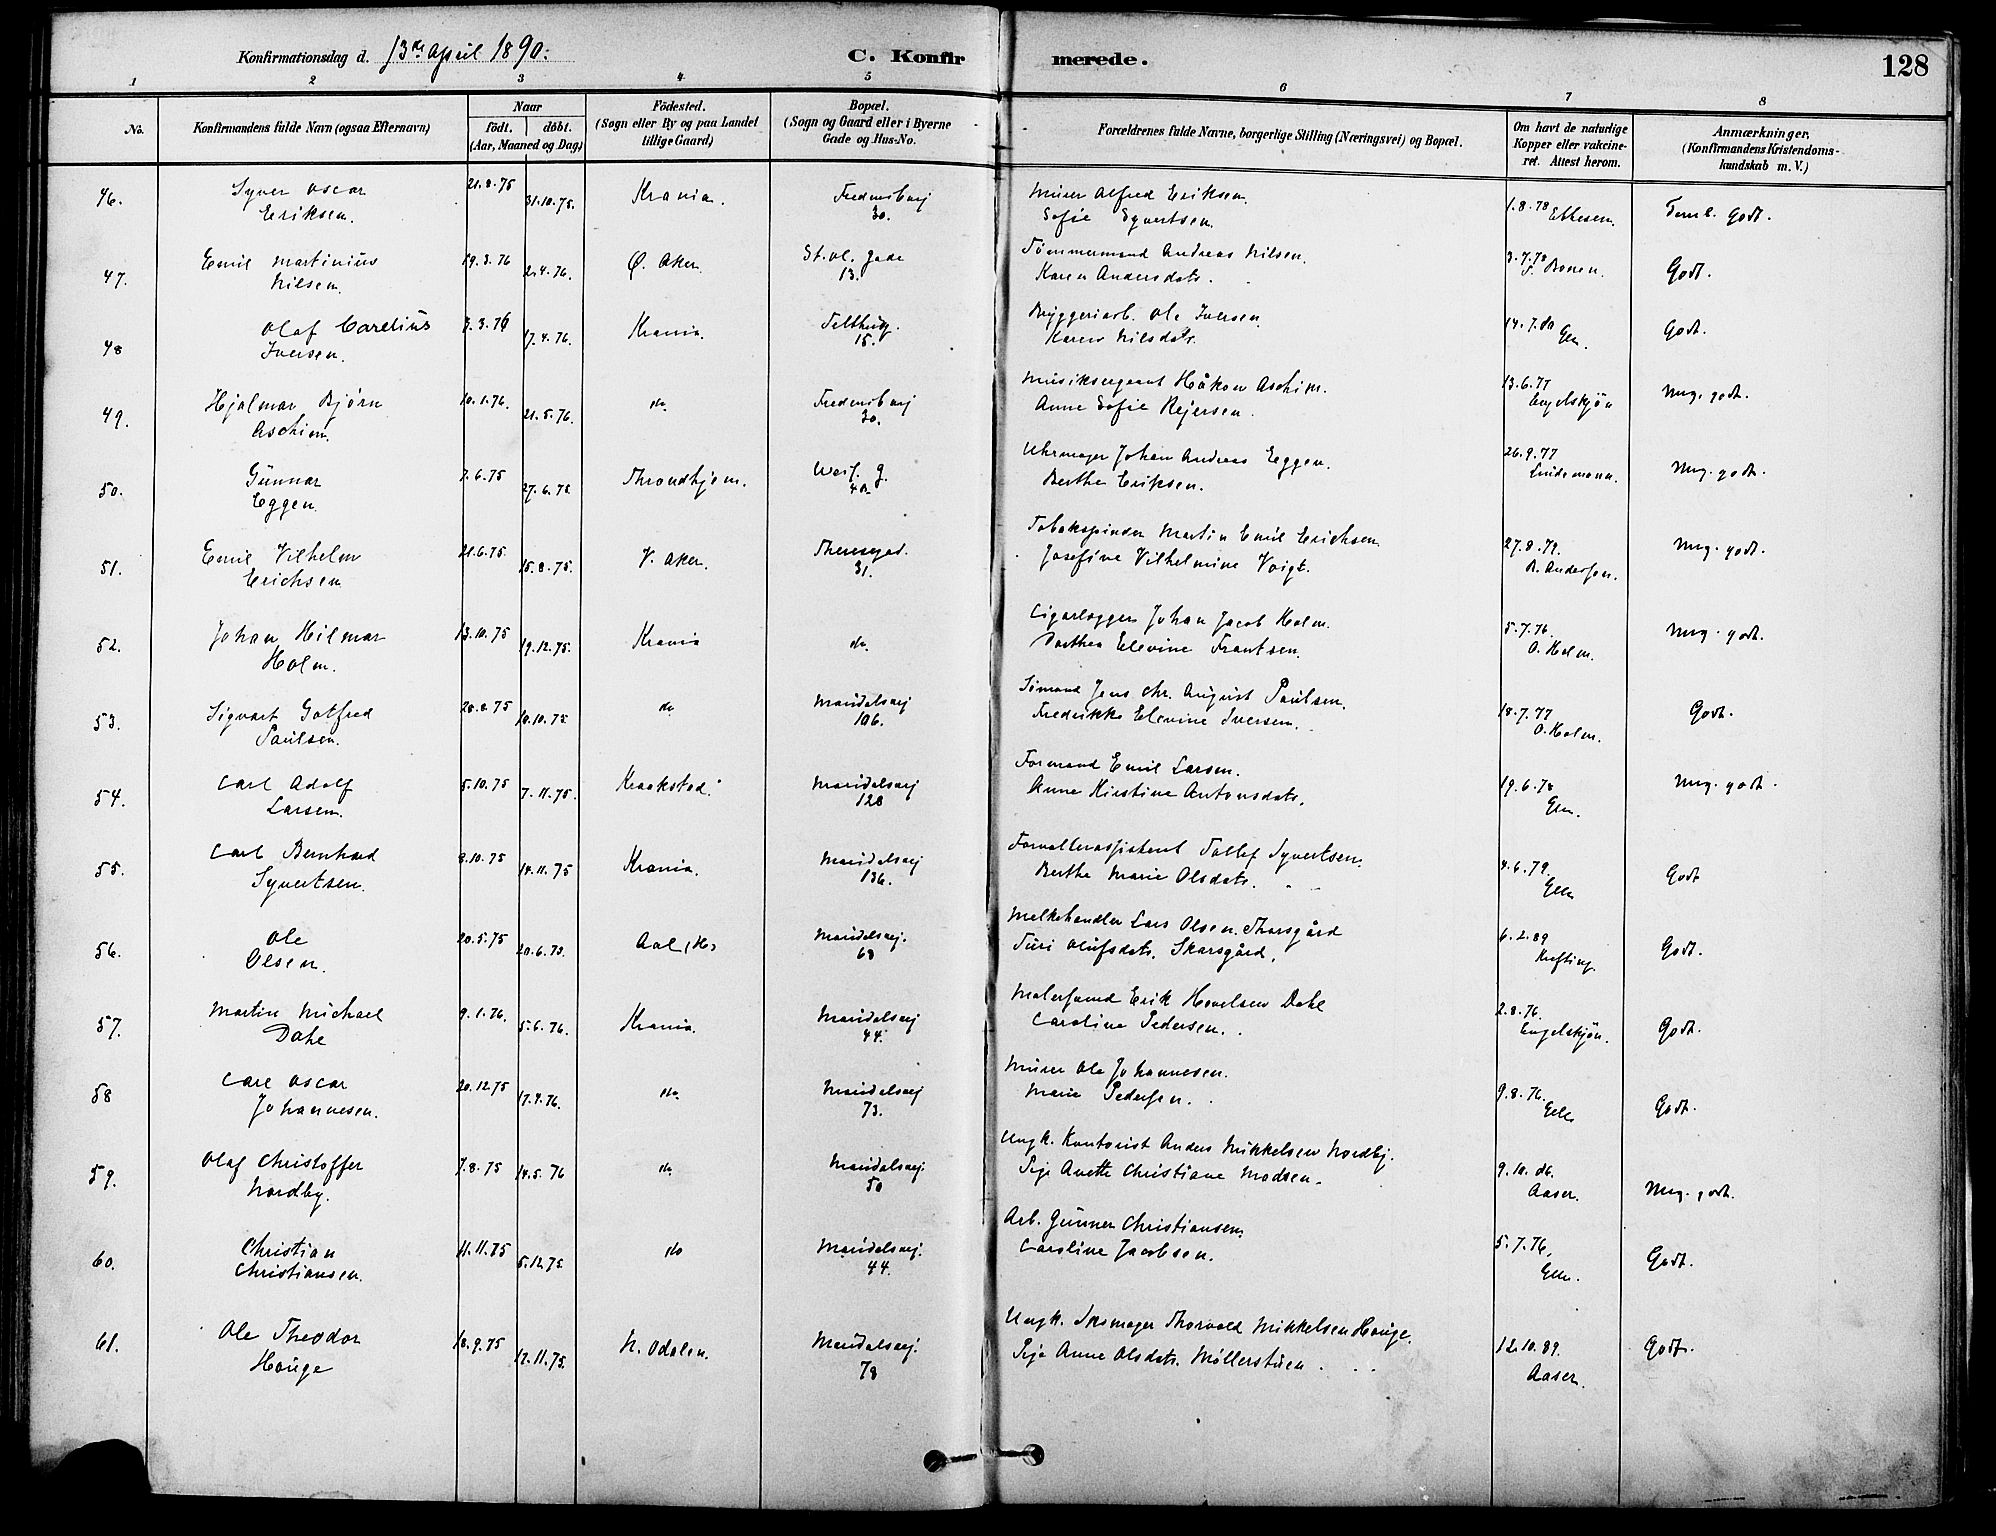 Konfirmationsdag d. 13de April 1890.
C. Konfirmerede.
128
1 2 3 4 5 6 7 8
No.
Konfirmandens fulde Navn (ogsaa Efternavn)
Naar
födt. döbt.
(Aar, Maaned og Dag)
Födested.
(Sogn eller By og paa Landet
tillige Gaard)
Bopæl.
(Sogn og Gaard eller i Byerne
Gade og Hus-No.
Forældrenes fulde Navne, borgerlige Stilling (Næringsvei) og Bopæl.
Om havt de naturlige
Kopper eller vakcine-
ret. Attest herom.
Anmærkninger.
(Konfirmandens Kristendoms-
kundskab m. V.)
46. Syver Oscar 21.8.75 31.10.75. Krania. Fredensbvej Murer Alfred Eriksen. 1.8.78 Temel. godt.
Eriksen. 30. Sofie Syvertsen.
47. Emil Martinius 19.3.76 2.4.76. Ø. Aker. St. Ol. gade Tömmermand Andreas Nilsen. 3.7.78 Godt.
Nilsen. 13. Karen Andersdatr.
48 Olaf Carelius 3.3.76 17.4.76. Krania. Telthusg. Bryggeriarb. Ole Iversen. 14.7.80 Godt.
Iversen. 15. Karen Nilsdatr.
49. Hjalmar Bjørn 10.1.76. 21.5.76. do. Fredensbvej Musiksergeant Håkon Aschim. 13.6.77 Mug. godt.
Aschim. 30. Anne Sofie Rejersen. Engelskjön
50. Gunnar 7.6.75 27.6.75. Throndhjem. Wesf. g. Uhrmager Johan Andreas Eggen. 26.9.77 Mug. godt.
Eggen. Berthe Eriksen. Lindemann.
51. Emil Vilhelm 21.6.75. 15.8.75. V. Aker. Theresegad. Tobakspinder Martin Emil Erichsen. 27.8.79. Mug. godt.
Erichsen 31. Josefine Vilhelmine Voigt. R. Anderssen.
52. Johan Hilmar 13.10.75 19.12.75. Krania do. Cigarlægger Johan Jacob Holm. 5.7.76. Mug. godt.
Holm. Dorthea Elevine Frantsen. O. Holm.
53. Sigvart Gotfred 28.8.75 10.10.75. do Maridalsvej Sömand Jens Chr. August Paulsen. 18.7.77 Godt.
Paulsen. 106. Fredrikke Elevine Iversen. O. Holm.
54. Carl Adolf 5.10.75 7.11.75. Kraakstad. Maridalsvej Formand Emil Larsen. 19.6.78 Mug. godt.
Larsen. 128 Anne Kirstine Antonsdatr. Elle.
55. Carl Bernhard 8.10.75 14.11.75 Krania. Maridalsvej Forvalterassistent Tollef Syvertsen. 4.6.79. Godt
Syvertsen. 136. Berthe Marie Olsdatr. Elle
56. Ole 20.5.75 20.6.75. Aal (H) Maridalsvej. Melkehandler Lars Olsen Thorsgård 6.2.89 Godt.
Olsen. 68 Turi Olufsdatr. Skarsgård. Krefting.
57. Martin Michael 9.1.76. 5.6.76. Krania. Maridalsvej Malersvend Erik Hovelsen Dahl 2.8.76. Godt.
Dahl 44. Caroline Pedersen. Engelskjön.
58 Carl Oscar 20.12.75 17.9.76. do. Maridalsvej Murer Ole Johannesen. 9.8.76. Godt.
Johannesen. 73. Marie Pedersen. Elle
59. Olaf Christoffer 7.8.75 14.5.76 do Maridalsvej. Ungk. Kontorist Anders Mikkelsen Nordby. 9.10.86. Mug. godt.
Nordby. 50 Pige Anette Christiane Madsen. Aaser.
60. Christian 11.11.75 5.12.75. do Maridalsvej. Arb. Gunner Christiansen. 5.7.76. Godt.
Christiansen. 44. Caroline Jacobsen. Elle.
61. Ole Theodor 18.9.75 12.11.75. N. Odalen. Maridalsvej. Ungk. Skomager Thorvald Mikkelsen Houge. 12.10.89. Godt.
Houge 78 Pige Anne Olsdatr. Møllerstuen. Aaser.